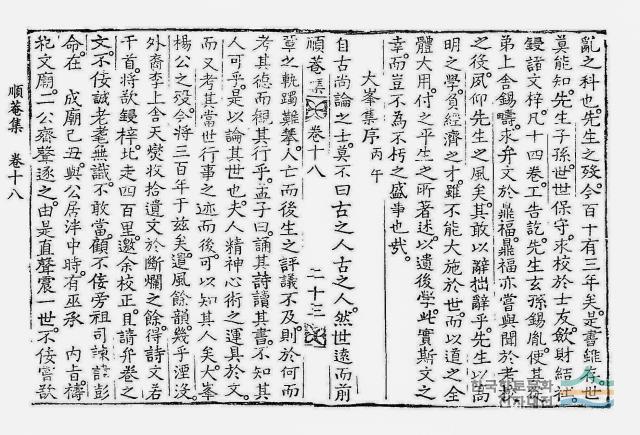 亂之科也。先生之歿。今百十有三年矣。是書雖存。世
莫能知。先生子孫。世世保守。求校於士友。斂財結社。
鋟諸文梓。凡十四卷。工告訖。先生玄孫錫胤。使其族
弟上舍錫疇。求弁文於鼎福。鼎福亦嘗與聞於考槃
之後。夙仰先生之風矣。其敢以辭拙辭乎。先生以高
明之學。負經濟之才。雖不能大施於世。而以道之全
體大用。付之平生之所著述。以遺後學。此實斯文之
幸。而豈不爲不朽之盛事也哉。
大峯集序 丙午
自古尚論之士。莫不曰古之人古之人。然世遠而前
順菴集 卷十八 二十三
輩之軌躅難攀。人亡而後生之評議不及。則於何而
考其德而觀其行乎。孟子曰。誦其詩讀其書。不知其
人可乎。是以論世也。夫人精神心術之運。具於文。
而又考其當世行事之迹而後。可以知其人矣。大峯
楊公之歿。今將三百年于玆矣。遺風餘韻。幾乎湮沒。
外裔李上舍天燮收拾遺文於斷爛之餘。得詩文若
干首。將欲鋟梓。北走四百里。邀余校正。且請弁卷之
文。不佞誠老耄無識。不敢當。顧不佞旁祖司諫諱彭
命。在 成廟己丑。與公居泮中。時有巫承 內旨禱
祀文廟。二公齊聲逐之。由是直聲震一世。不佞嘗欲
順菴集 卷十八
한국학토론문화